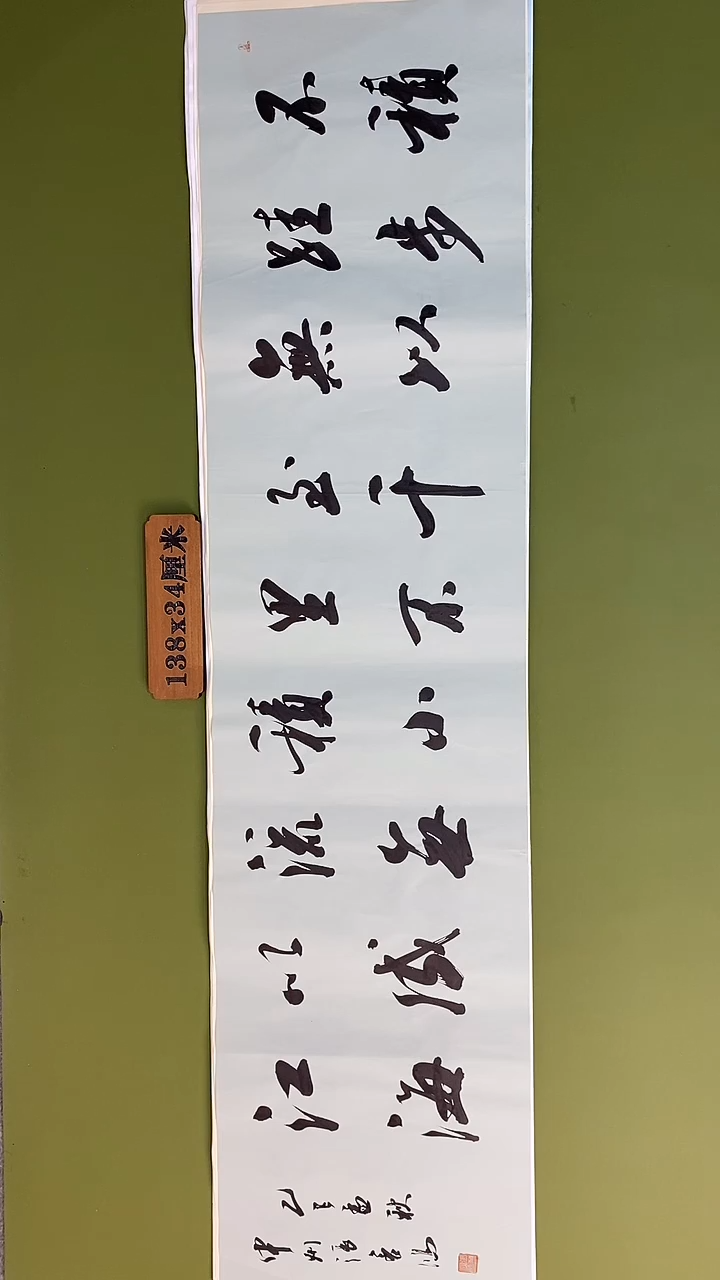 不積
跬步
無以
至千
里不
積小
流無
以成
江海
乙巳 秋
州
138x34厘米